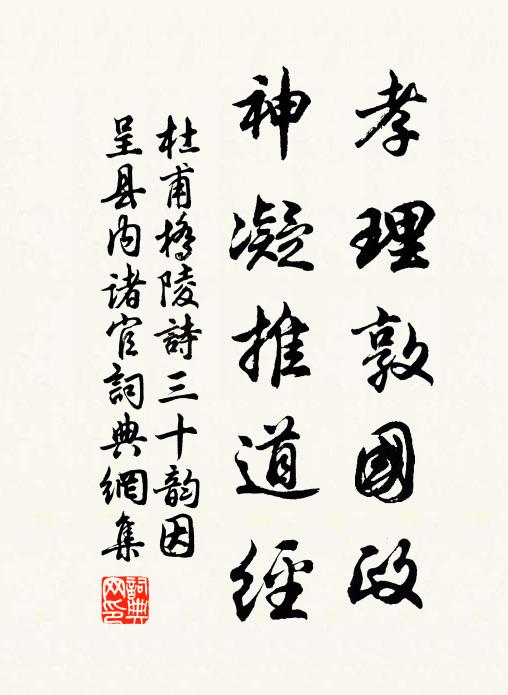 孝理敦國政
神凝推道經
杜甫橋陵詩三十韵因
呈县内诸官詞典網集
詞典网印